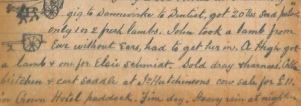 gig to Dannevirke to Dentist, got 20 lbs
only 1 or 2 fresh lambs. John took a lamb from
Ewe without Ears, had to get her in. A High got
a lamb & on for Elsie Schmidt. Sold dray & harness,
kitchen & cart saddle at Hutchinsons cow sale for £11.
in Crown Hotel paddock. Fine day. Heavy rain at night.